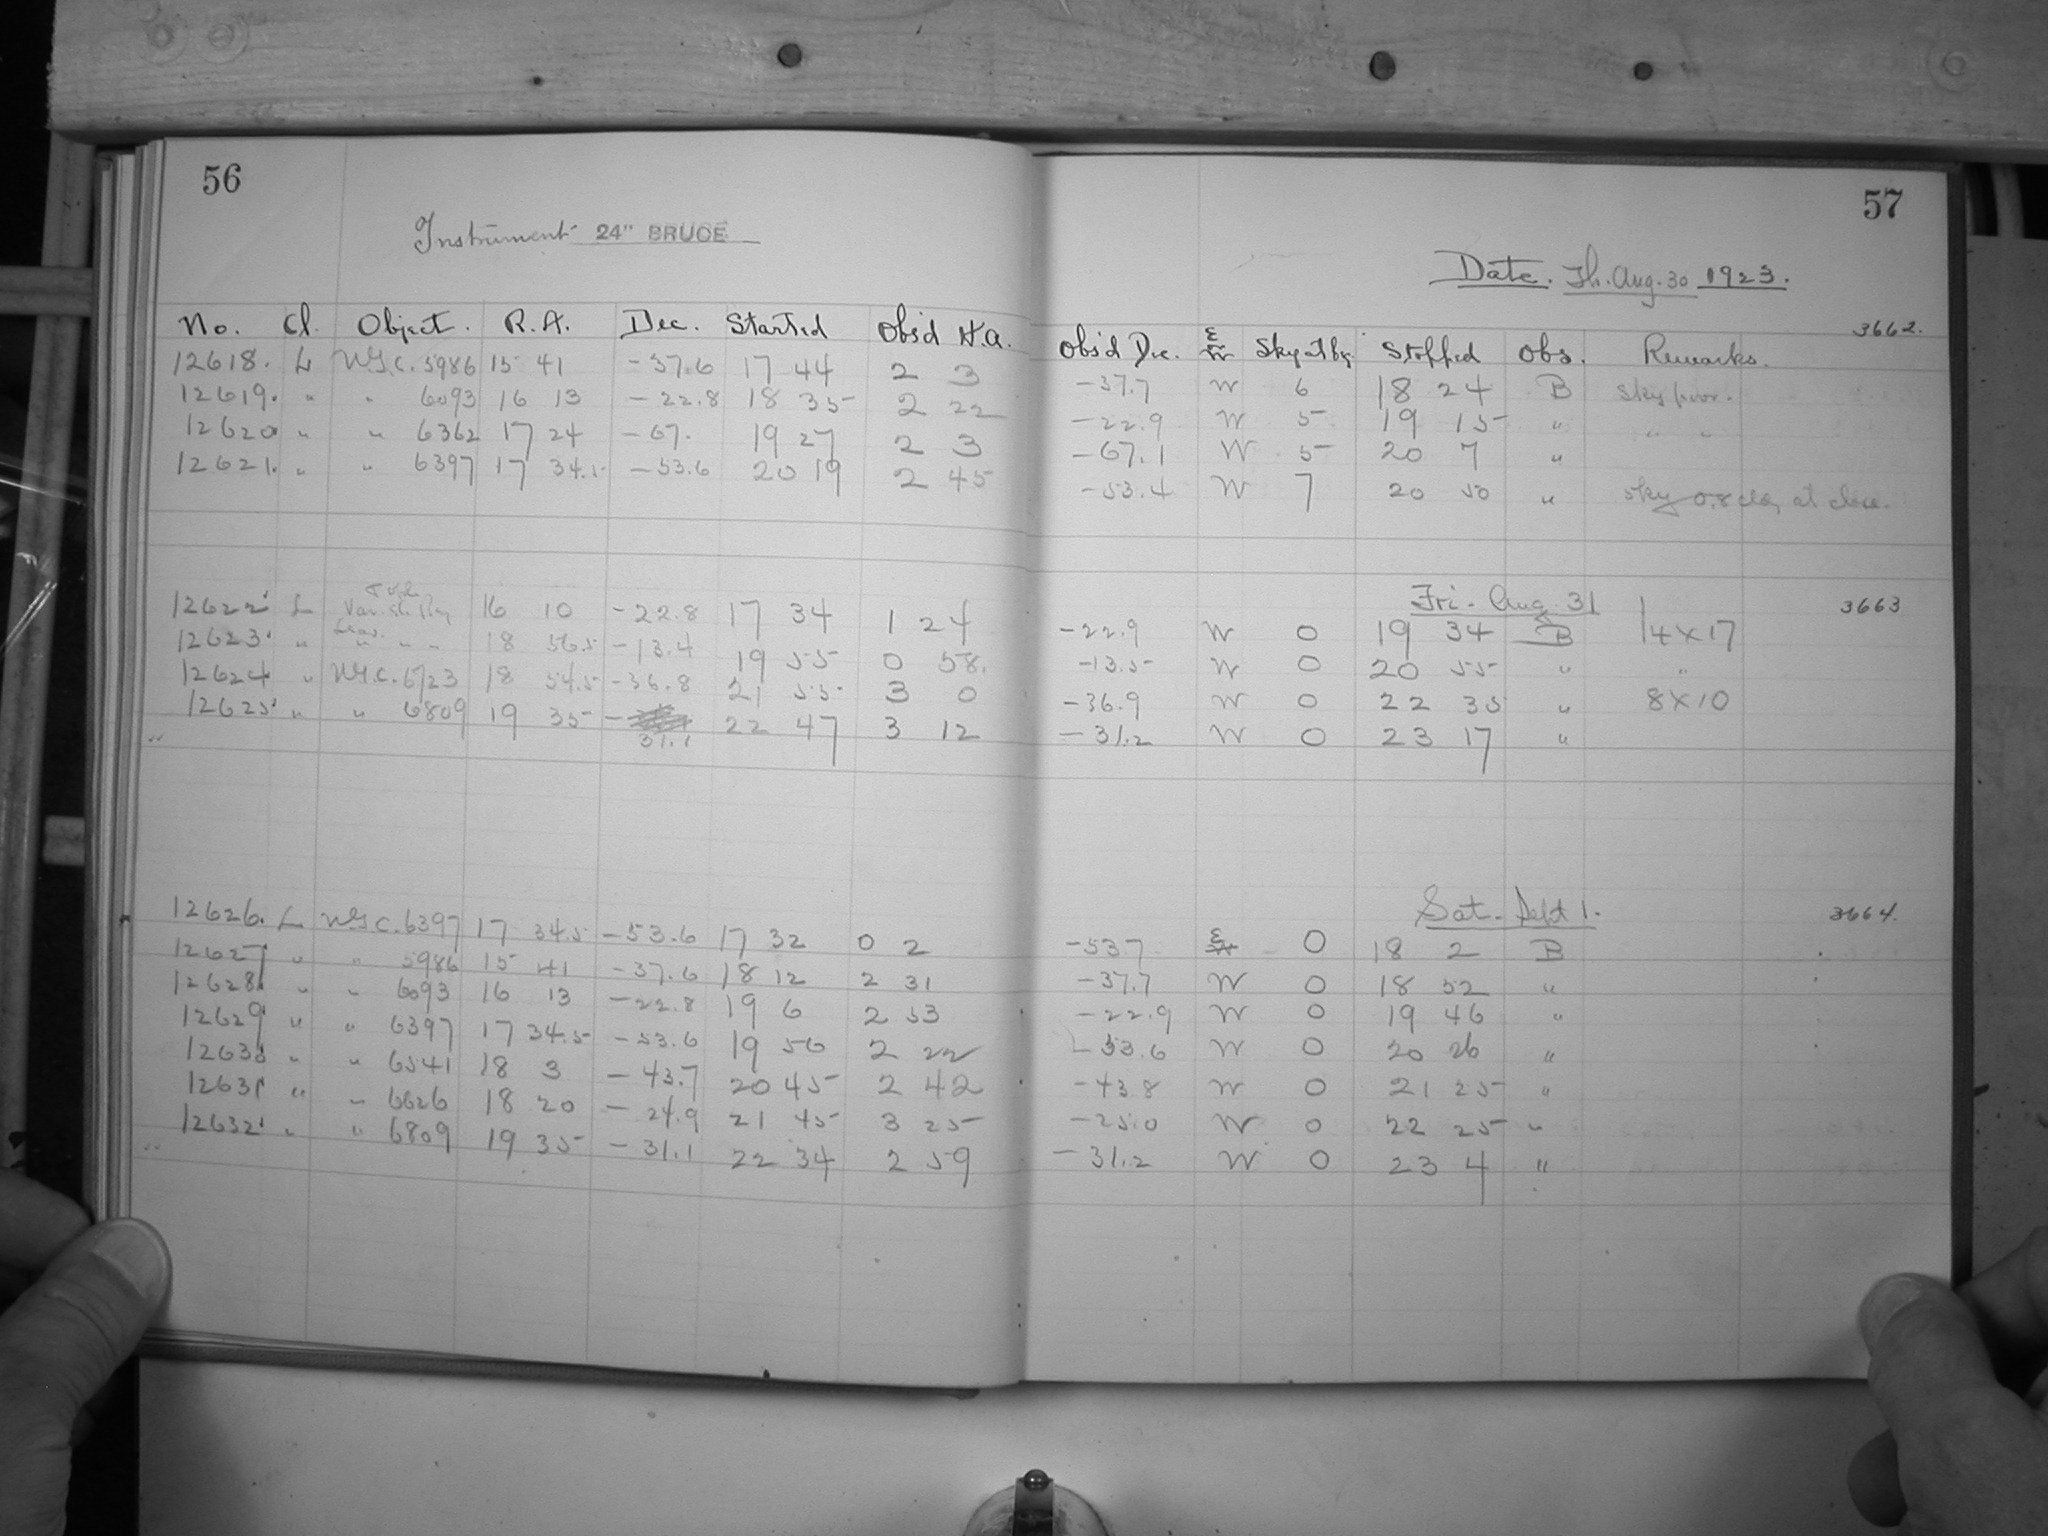 56
57
Instrument 24" BRUCE
Date. Th. Aug. 30 1923.
No. Cl. Object. R.A. Dec. Started Obs'd H.A. Obs'd Dec. E W Sky at bg. Stopped Obs. Remarks. 3662.
12618. L N.G.C. 5986 15 41 -37.6 17 44 2 3 -37.7 W 6 18 24 B Sky poor.
12619. " " 6093 16 13 -22.8 18 35 2 22 -22.9 W 5 19 15 " " "
12620 " " 6362 17 24 -67. 19 27 2 3 -67.1 W 5 20 7 "
12621. " " 6397 17 34.5 -53.6 20 19 2 45 -53.4 W 7 20 50 " Sky 0.8 cldy at close.
Fri. Aug. 31 3663
12622 L Var. St. 16 10 -22.8 17 34 1 24 -22.9 W 0 19 34 B 14 X 17
12623 " " " " 18 56.5 -13.4 19 55 0 58. -13.5 W 0 20 55 " "
12624 " N.G.C. 6723 18 54.5 -36.8 21 55 3 0 -36.9 W 0 22 35 " 8 X 10
12625 " " 6809 19 35 -31.1 22 47 3 12 -31.2 W 0 23 17 "
Sat. Sept 1. 3664.
12626. L N.G.C. 6397 17 34.5 -53.6 17 32 0 2 -53.7 E 0 18 2 B
12627 " " 5986 15 41 -37.6 18 12 2 31 -37.7 W 0 18 52 "
12628 " " 6093 16 13 -22.8 19 6 2 53 -22.9 W 0 19 46 "
12629 " " 6397 17 34.5 -53.6 19 56 2 22 -53.6 W 0 20 26 "
12630 " " 6541 18 3 -43.7 20 45 2 42 -43.8 W 0 21 25 "
12631 " " 6626 18 20 -24.9 21 45 3 25 -25.0 W 0 22 25 "
12632 " " 6809 19 35 -31.1 22 34 2 59 -31.2 W 0 23 4 "